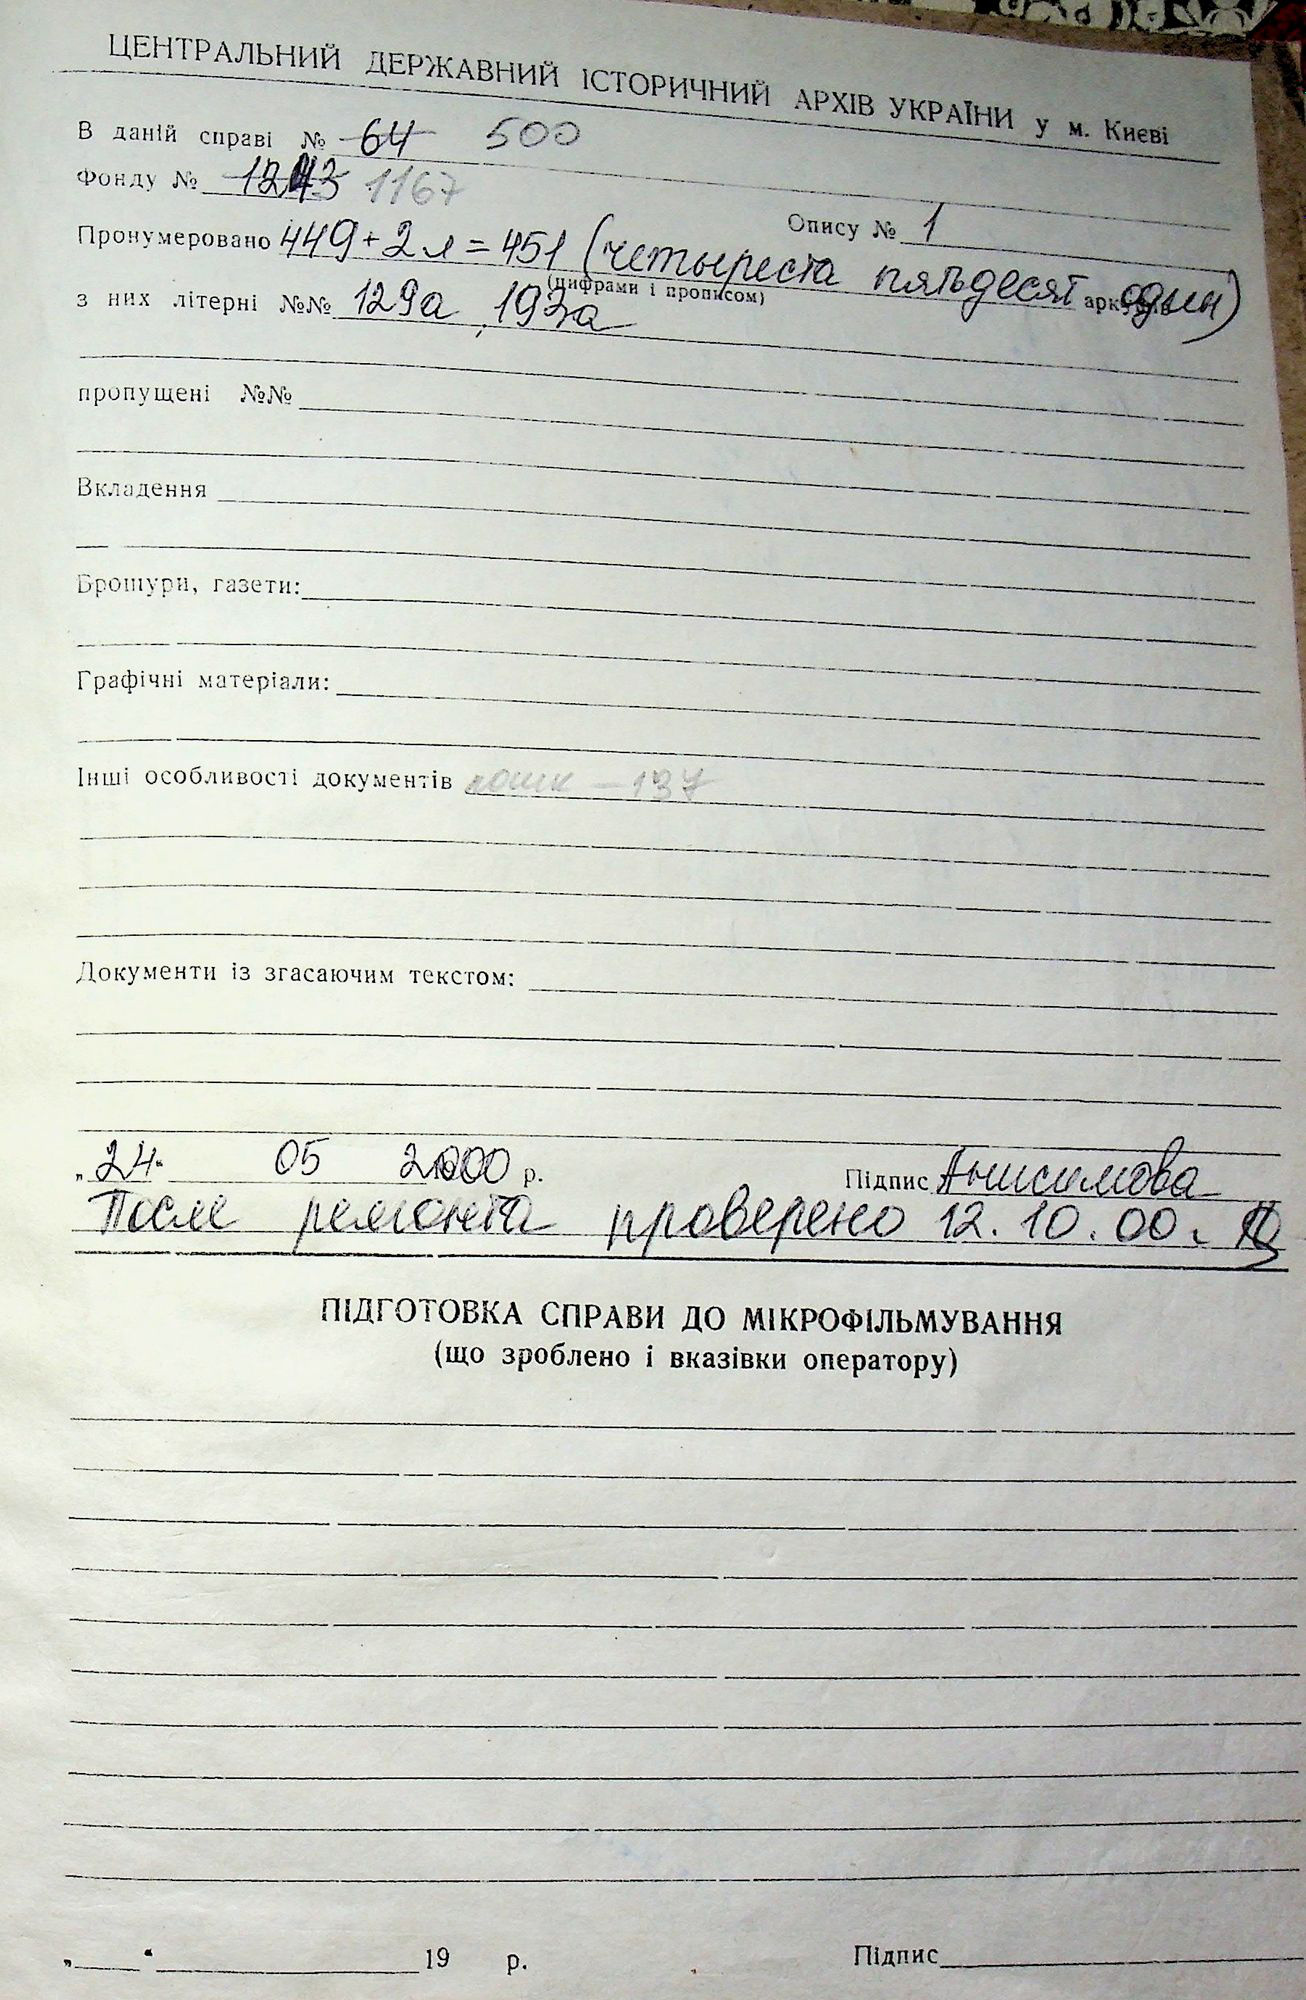 ЦЕНТРАЛЬНИЙ ДЕРЖАВНИЙ ІСТОРИЧНИЙ АРХІВ УКРАЇНИ у м. Києві
В даній справі № 64 500
Фонду № 1243 1167
Опису № 1
Пронумеровано 449 + 2 л = 451 (четыреста пятьдесят один)
(цифрами і прописом) аркушів
з них літерні №№ 129а, 193а
пропущені №№
Вкладення
Брошури, газети:
Графічні матеріали:
Інші особливості документів пошк – 137
Документи із згасаючим текстом:
„24“ 05 2000 р. Підпис Анисимова
После ремонта проверено 12.10.00.
ПІДГОТОВКА СПРАВИ ДО МІКРОФІЛЬМУВАННЯ
(що зроблено і вказівки оператору)
„ “ 19 р. Підпис